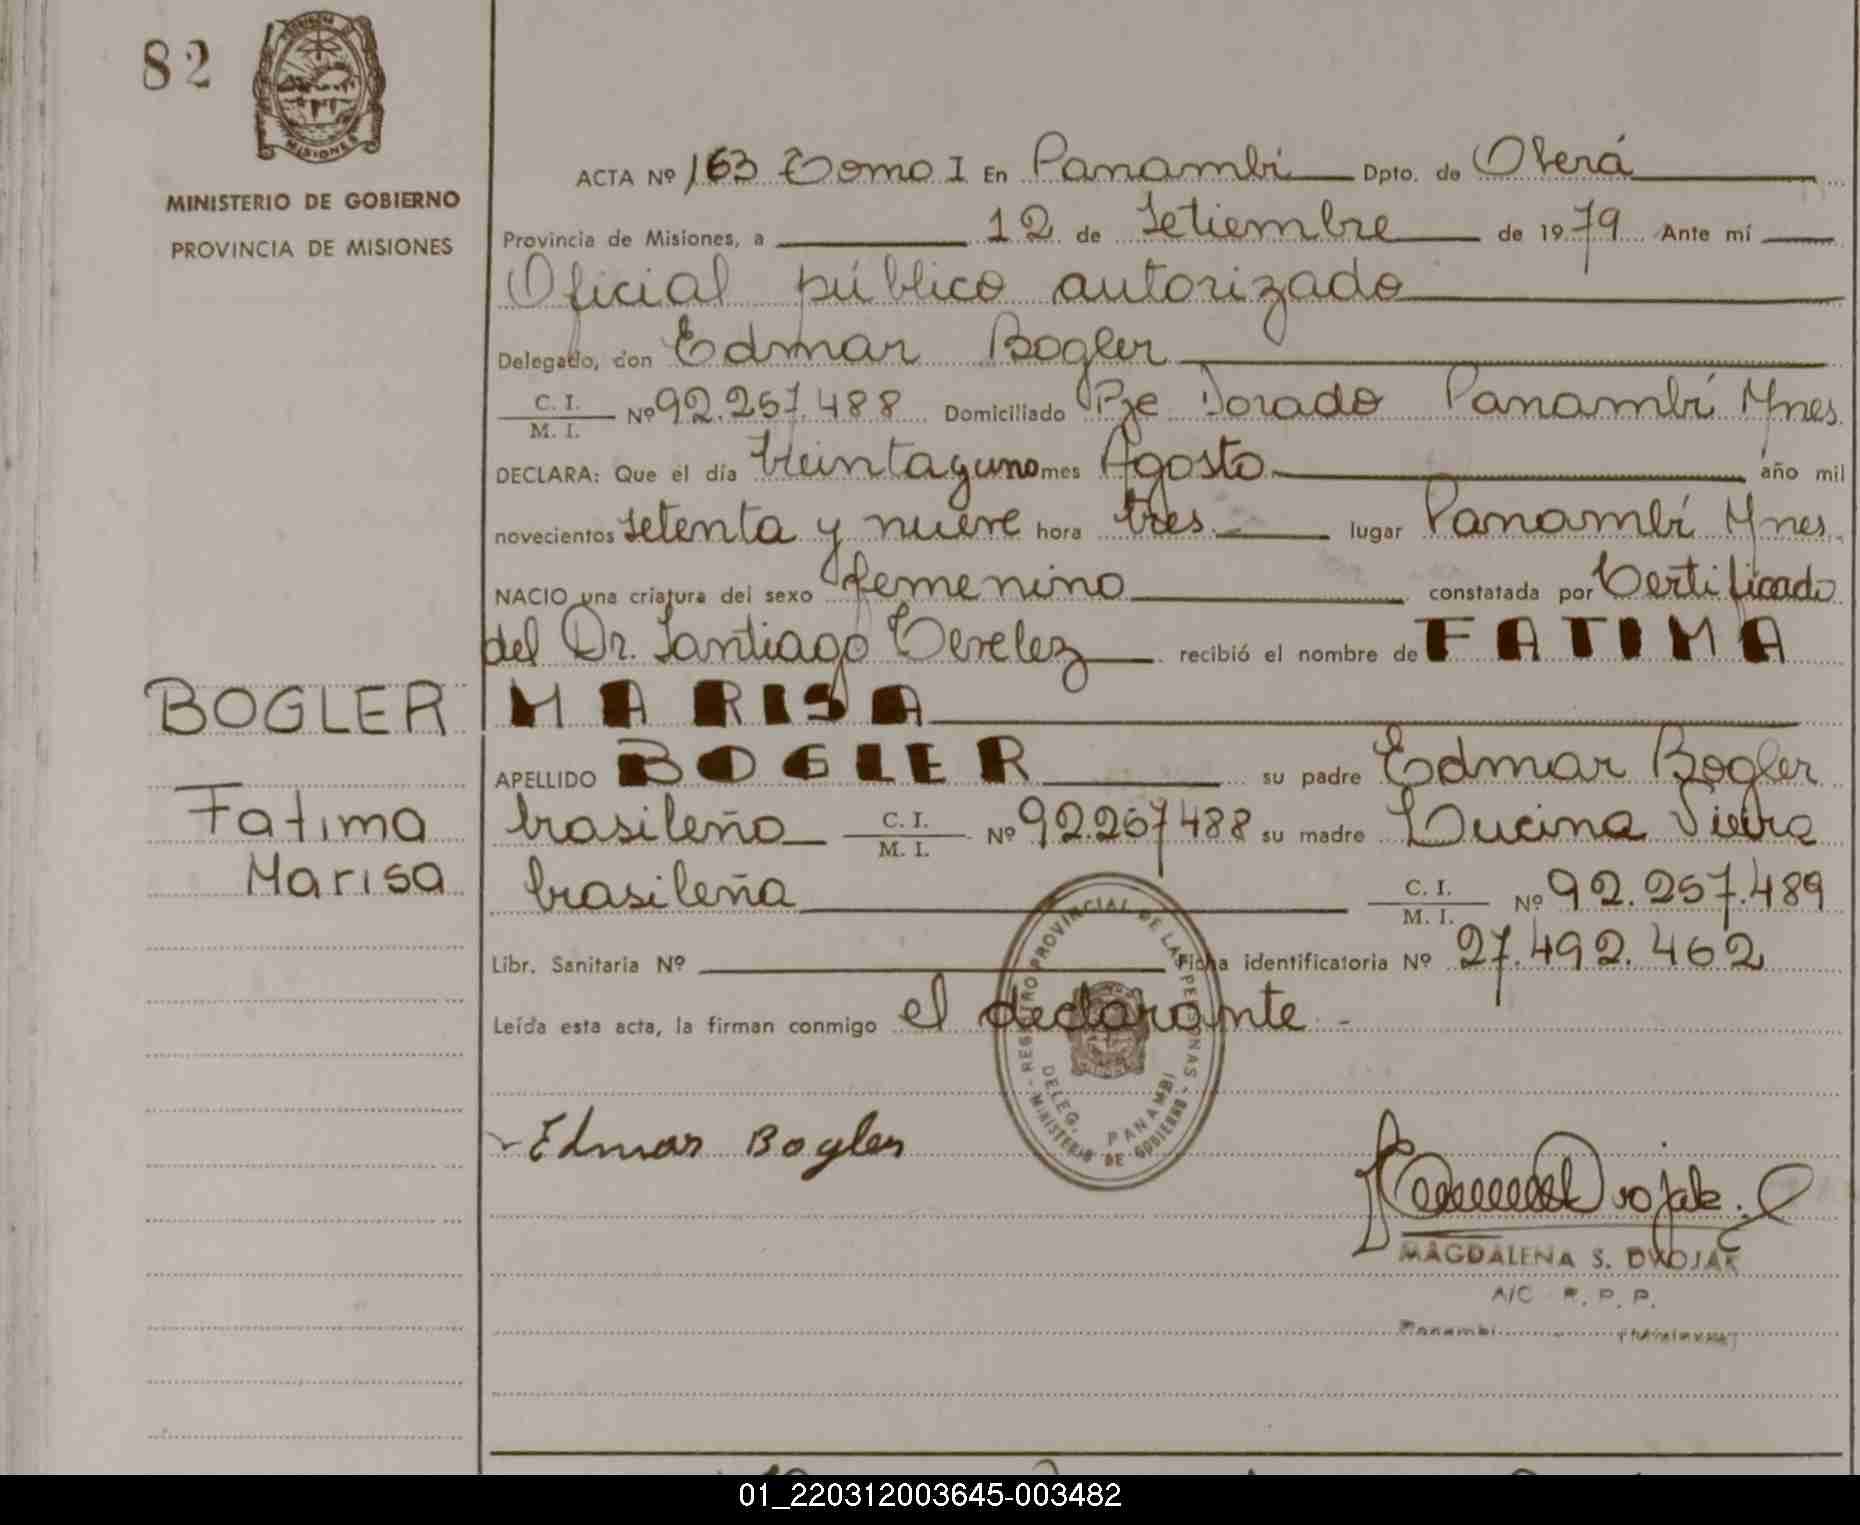 82
MISIONES
MINISTERIO DE GOBIERNO
PROVINCIA DE MISIONES
ACTA Nº 163 Tomo I En Panambí Dpto. de Oberá
Provincia de Misiones, a 12 de Setiembre de 1979 Ante mí
Oficial público autorizado
Delegado, don Edmar Bogler
C. I.
M. I. Nº 92.257.488 Domiciliado Pje Dorado Panambí Mnes.
DECLARA: Que el día treintayuno mes Agosto año mil
novecientos setenta y nueve hora tres lugar Panambí Mnes.
NACIO una criatura del sexo femenino constatada por Certificado
del Dr. Santiago recibió el nombre de FATIMA
MARISA
APELLIDO BOGLER su padre Edmar Bogler
brasileño C. I.
M. I. Nº 92.257488 su madre Lucina Vieira
brasileña C. I.
M. I. Nº 92.257.489
Libr. Sanitaria Nº Ficha identificatoria Nº 27.492.462
Leída esta acta, la firman conmigo el declarante -
BOGLER
Fatima
Marisa
REGISTRO PROVINCIAL DE LAS PERSONAS - MINISTERIO DE GOBIERNO -
DELEG. PANAMBI
Edmar Bogler
Dvojak.
MAGDALENA S. DVOJAK
A/C R. P. P.
Panambí
01_220312003645-003482